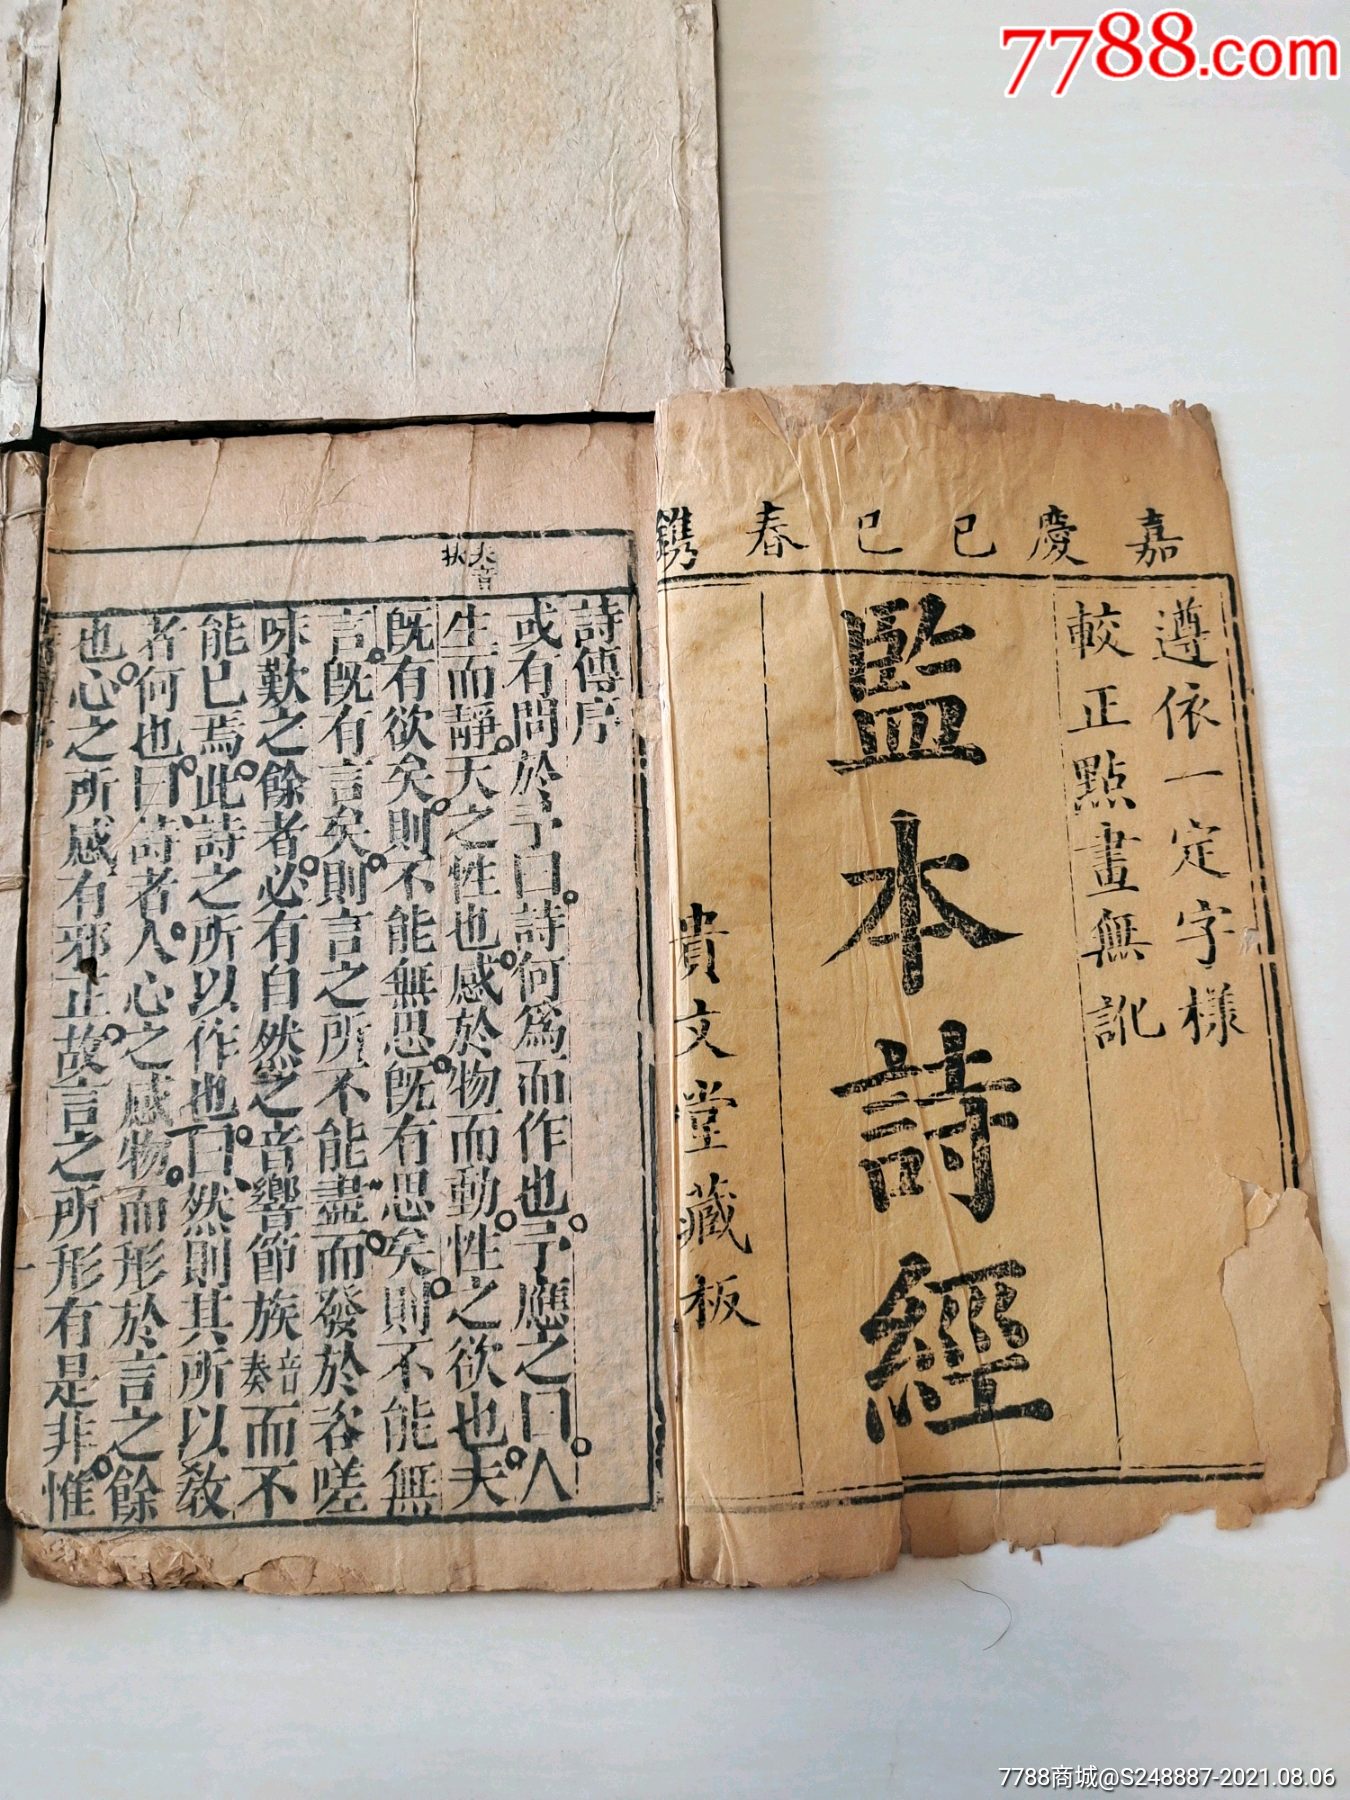 7788.com
嘉慶己巳春鐫
遵依一定字樣
較正點畫無訛
監本詩經
貴文堂藏板
夫音
扶
詩傳序
或有問於予曰詩何爲而作也予應之曰人
生而靜天之性也感於物而動性之欲也夫
既有欲矣則不能無思既有思矣則不能無
言既有言矣則言之所不能盡而發於咨嗟
咏歎之餘者必有自然之音響節族音奏而不
能已焉此詩之所以作也曰然則其所以教
者何也曰詩者人心之感物而形於言之餘
也心之所感有邪正故言之所形有是非惟
7788商城@S248887-2021.08.06